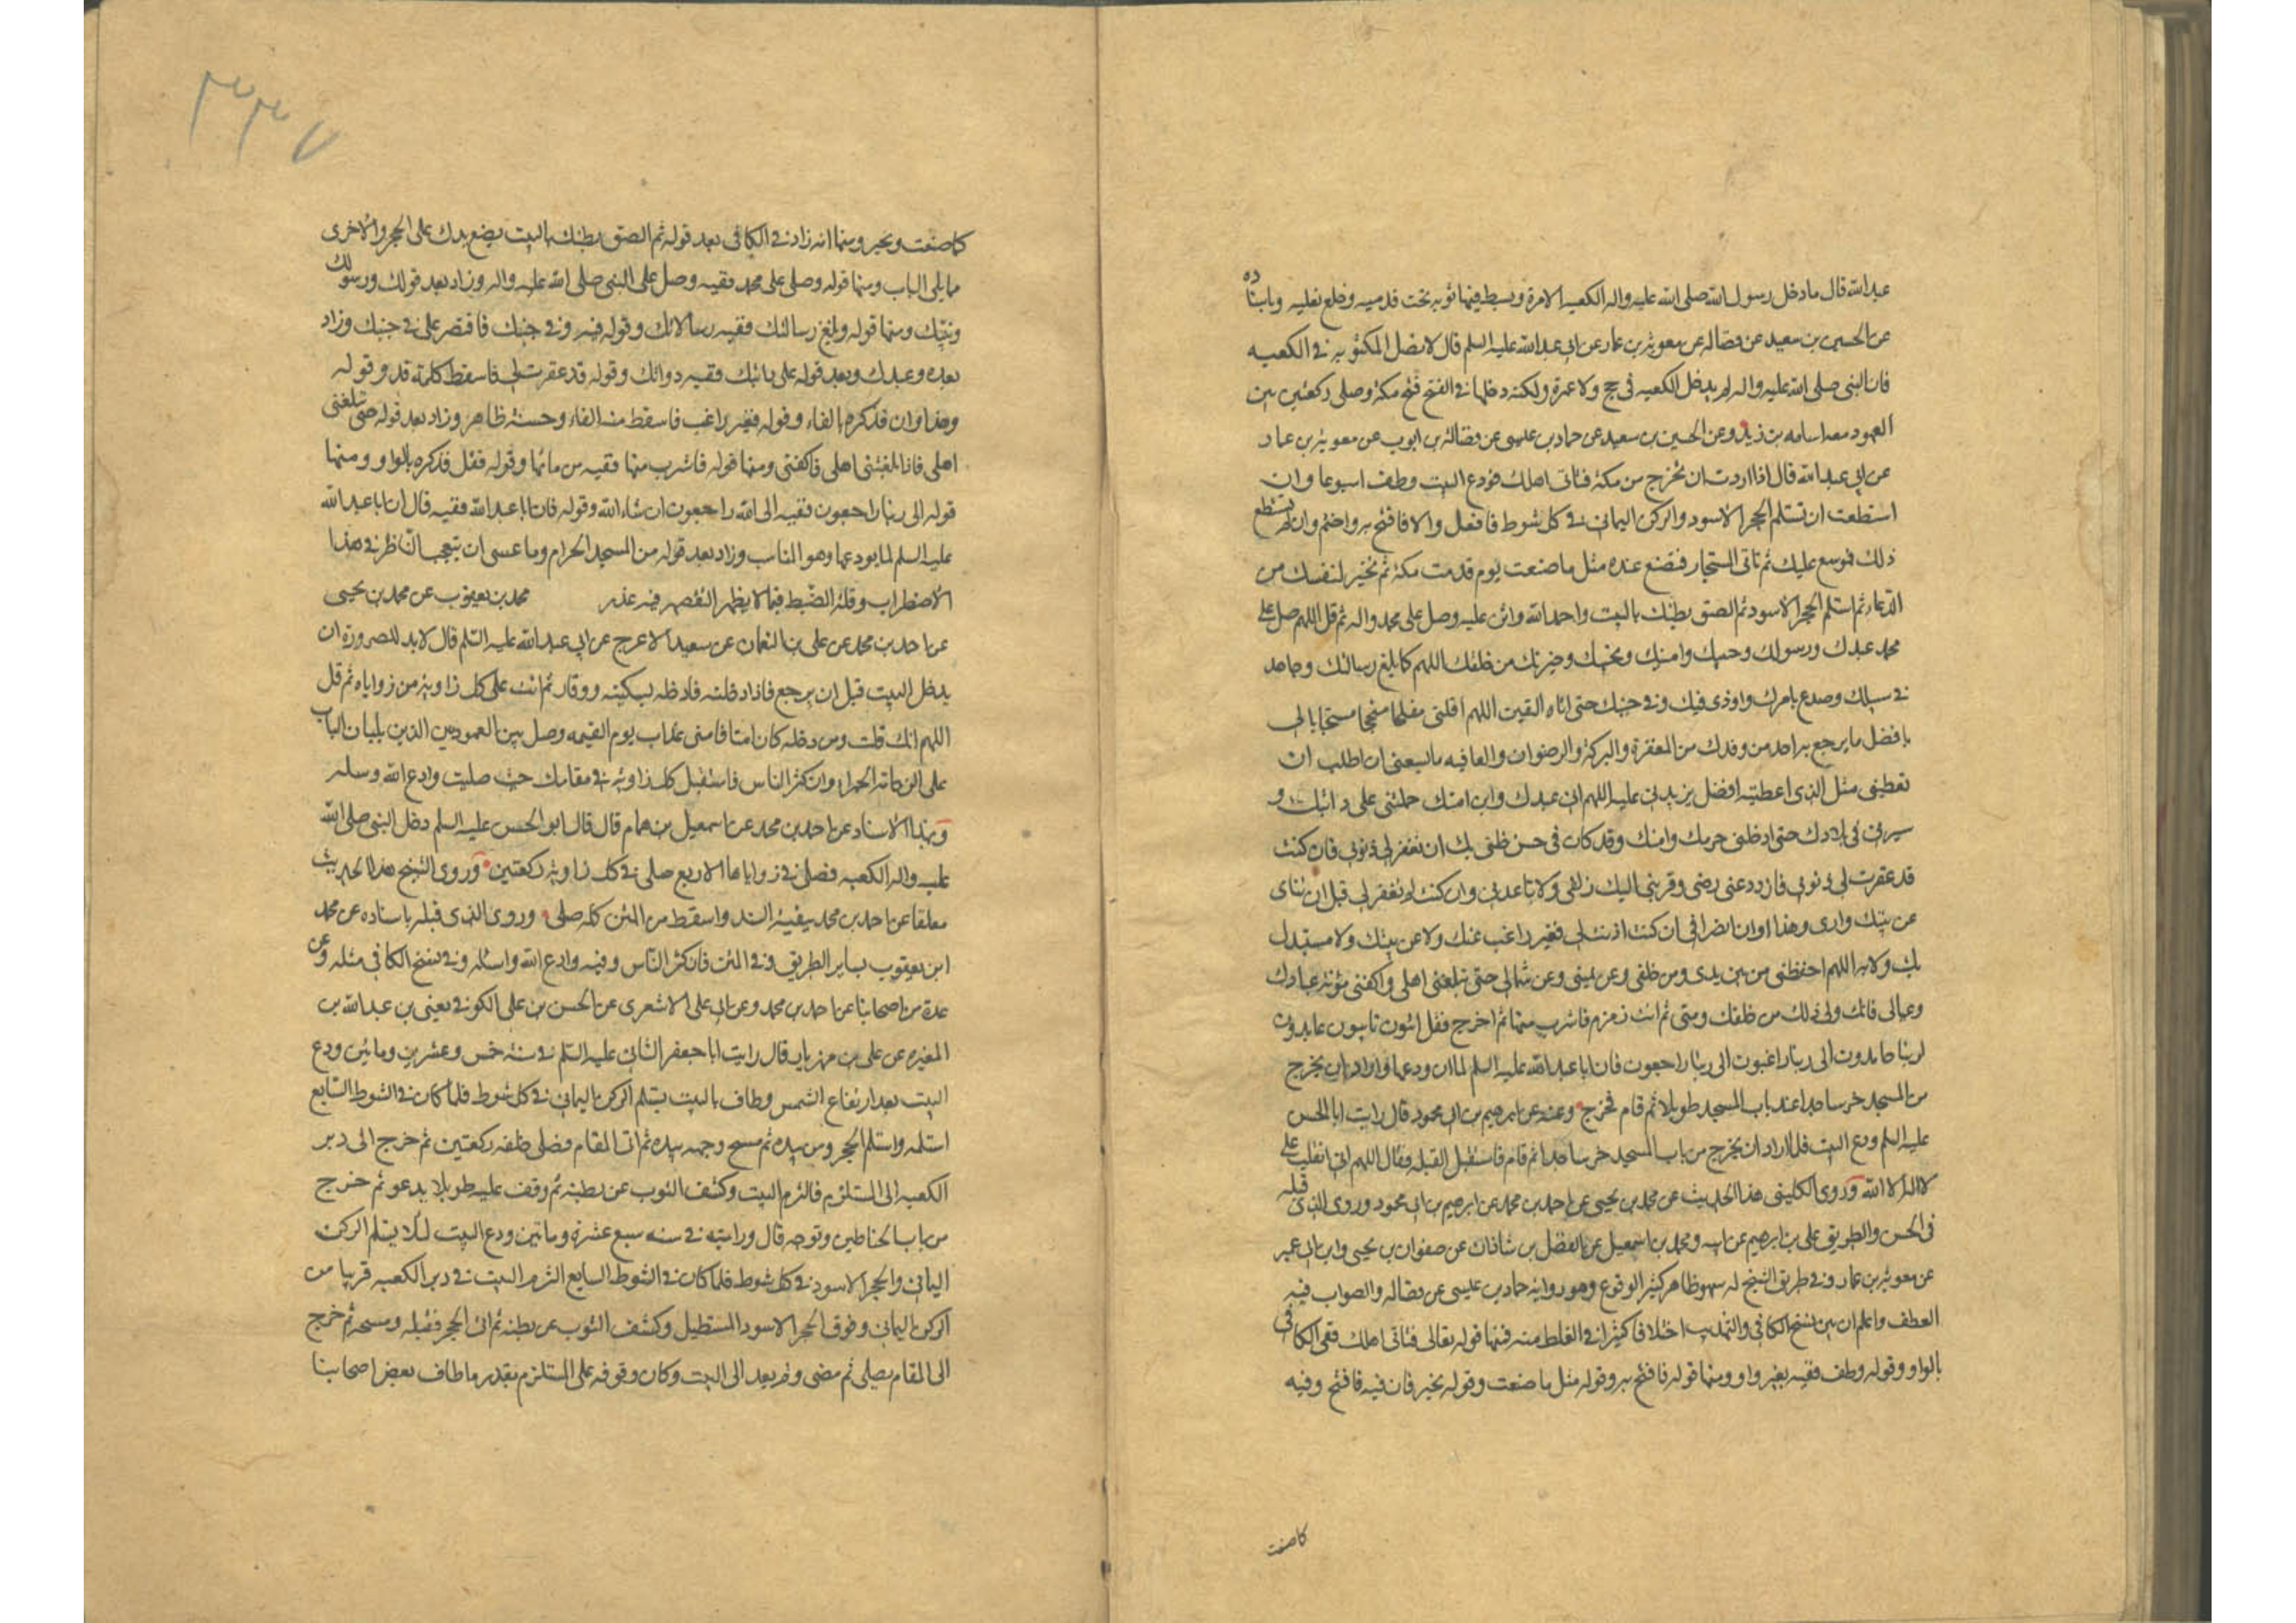 عبد الله قال ما دخل رسول الله صلى الله عليه واله الكعبه الا مرة وبسط فيها ثوبه تحت قدميه وخلع نعليه وباسناده
عن الحسين بن سعيد عن فضاله عن معوية بن عمار عن ابى عبد الله عليه السلم قال لا تصل المكتوبه في الكعبه
فان النبى صلى الله عليه واله لم يدخل الكعبه فى حج ولا عمرة ولكنه دخلها في الفتح فتح مكة وصلى ركعتين بين
العمود معه اسامه بن زيد وعن الحسين بن سعيد عن حماد بن عيسى عن فضالة بن ايوب عن معوية بن عمار
عن ابى عبد الله قال اذا اردت ان تخرج من مكة فتاتى اهلك فودع البيت وطف اسبوعا وان
استطعت ان تستلم الحجر الاسود والركن اليمانى في كل شوط فافعل والا فافتح به واختم وان لم تستطع
ذلك فموسع عليك ثم تاتى المستجار فتصنع عنده مثل ما صنعت يوم قدمت مكة ثم تخير لنفسك من
الدعاء ثم استلم الحجر الاسود ثم الصق بطنك بالبيت واحمد الله واثن عليه وصل على محمد واله ثم قل اللهم صل على
محمد عبدك ورسولك وحبيبك وامينك ونجيبك وخيرتك من خلقك اللهم كما بلغ رسالتك وجاهد
في سبيلك وصدع بامرك واوذى فيك وفي جنبك حتى اتاه اليقين اللهم اقلبنى مفلحا منجحا مستجابا لى
بافضل ما يرجع به احد من وفدك من المغفرة والبركة والرضوان والعافيه مما يسعنى ان اطلب ان
تعطينى مثل الذى اعطيته افضل يزيدنى عليه اللهم انى عبدك وابن امتك حملتنى على دابتك و
سيرتنى فى بلادك حتى ادخلتنى حرمك وامنك وقد كان فى حسن ظنى بك ان تغفر لى ذنوبى فان كنت
قد غفرت لى ذنوبى فازدد عنى رضى وقربنى اليك زلفى ولا تباعدنى وان كنت لم تغفر لى قبل ان تناى
عن بيتك دارى وهذا اوان انصرافى ان كنت اذنت لى فغير راغب عنك ولا عن بيتك ولا مستبدل
بك ولا به اللهم احفظنى من بين يدى ومن خلفى وعن يمينى وعن شمالى حتى تبلغنى اهلى واكفنى مؤنة عبادك
وعيالى فانك ولى ذلك من خلقك ومنى ثم ائت زمزم فاشرب منها ثم اخرج فقل ائبون تائبون عابدون
لربنا حامدون الى ربنا راغبون الى ربنا راجعون فان ابا عبد الله عليه السلم لما ان ودعها واراد ان يخرج
من المسجد خر ساجدا عند باب المسجد طويلا ثم قام فخرج وعنه عن ابرهيم بن ابى محمود قال رايت ابا الحسن
عليه السلم ودع البيت فلما اراد ان يخرج من باب المسجد خر ساجدا ثم قام فاستقبل القبله فقال اللهم انى انقلب على
لا اله الا الله وروى الكلينى هذا الحديث عن محمد بن يحيى عن احمد بن محمد عن ابرهيم بن ابى محمود وروى الذى قبله
فى الحسن والطريق على بن ابرهيم عن ابيه ومحمد بن اسمعيل عن الفضل بن شاذان عن صفوان بن يحيى وابن ابى عمير
عن معوية بن عمار وفي طريق الشيخ له سهو ظاهر كثير الوقوع وهو رواية حماد بن عيسى عن فضاله والصواب فيه
العطف واعلم ان بين نسخ الكافى والتهذيب اختلافا كثيرا في الفلط منه فمنها قوله تعالى فتاتى اهلك ففى الكافى
بالواو وقوله وطف ففيه بغير واو ومنها قوله فافتح به وقوله مثل ما صنعت وقوله تخير فان فيه فافتح وفيه
كما صنعت
٣٣٧
كما صنعت وتخير ومنها انه زاد في الكافى بعد قوله ثم الصق بطنك بالبيت يضع يدك على الحجر والاخرى
مما يلى الباب ومنها قوله وصلى على محمد ففيه وصل على النبى صلى الله عليه واله وزاد بعد قولك ورسولك
ونبيك ومنها قوله وبلغ رسالتك ففيه رسالاتك وقوله فيه وفي جنبك فاقتصر على في جنبك وزاد
بعده وعبدك وبعد قوله على دابتك ففيه دوابك وقوله قد غفرت لى فاسقط كلمة قد وقوله
وهذا اوان فذكره بالفاء وقوله فغير راغب فاسقط منه الفاء وحسنه ظاهر وزاد بعد قوله حتى تبلغنى
اهلى فاذا بلغتنى اهلى فاكفنى ومنها قوله فاشرب منها ففيه من مائها وقوله فقل فذكره بالواو ومنها
قوله الى ربنا راجعون ففيه الى الله راجعون ان شاء الله وقوله فان ابا عبد الله ففيه قال ان ابا عبد الله
عليه السلم لما يودعها وهو المناسب وزاد بعد قوله من المسجد الحرام وما عسى ان يتعجب الناظر في هذا
الاضطراب وقلة الضبط فيما لا يظهر التقصير فيه عذر محمد بن يعقوب عن محمد بن يحيى
عن احمد بن محمد عن على بن النعمان عن سعيد الاعرج عن ابى عبد الله عليه السلم قال لا بد للصرورة ان
يدخل البيت قبل ان يرجع فاذا دخلته فادخله بسكينه ووقار ثم ائت على كل زاوية من زواياه ثم قل
اللهم انك قلت ومن دخله كان امنا فامنى عذاب يوم القيمه وصل بين العمودين الذين يليان الباب
على الرخامة الحمراء وان كثر الناس فاستقبل كل زاويه في مقامك حيث صليت وادع الله وسله
وبهذا الاسناد عن احمد بن محمد عن اسمعيل بن همام قال قال ابو الحسن عليه السلم دخل النبى صلى الله
عليه واله الكعبه فصلى في زواياها الاربع صلى في كل زاوية ركعتين وروى الشيخ هذا الحديث
معلقا عن احمد بن محمد ببقية السند واسقط من المتن كله صلى وروى الذى قبله باسناده عن محمد
ابن يعقوب بساير الطريق وفي المتن فان كثر الناس وفيه وادع الله واسئله وفي نسخ الكافى مثله وعن
عدة من اصحابنا عن احمد بن محمد وعن ابى على الاشعرى عن الحسن بن على الكوفى يعنى بن عبد الله بن
المغيره عن على بن مهزيار قال رايت ابا جعفر الثانى عليه السلم في سنة خمس وعشرين ومائتين ودع
البيت بعد ارتفاع الشمس وطاف بالبيت يستلم الركن اليمانى في كل شوط فلما كان في الشوط السابع
استلمه واستلم الحجر ومس بيده ثم مسح وجهه بيده ثم اتى المقام فصلى خلفه ركعتين ثم خرج الى دبر
الكعبه الى الملتزم فالتزم البيت وكشف الثوب عن بطنه ثم وقف عليه طويلا يدعو ثم خرج
من باب الحناطين وتوجه قال ورايته في سنه سبع عشرة ومائتين ودع البيت ليلا يستلم الركن
اليمانى والحجر الاسود في كل شوط فلما كان في الشوط السابع التزم البيت في دبر الكعبه قريبا من
الركن اليمانى وفوق الحجر الاسود المستطيل وكشف الثوب عن بطنه ثم اتى الحجر فقبله ومسحه ثم خرج
الى المقام يصلى ثم مضى ولم يعد الى البيت وكان وقوفه على الملتزم بقدر ما طاف بعض اصحابنا